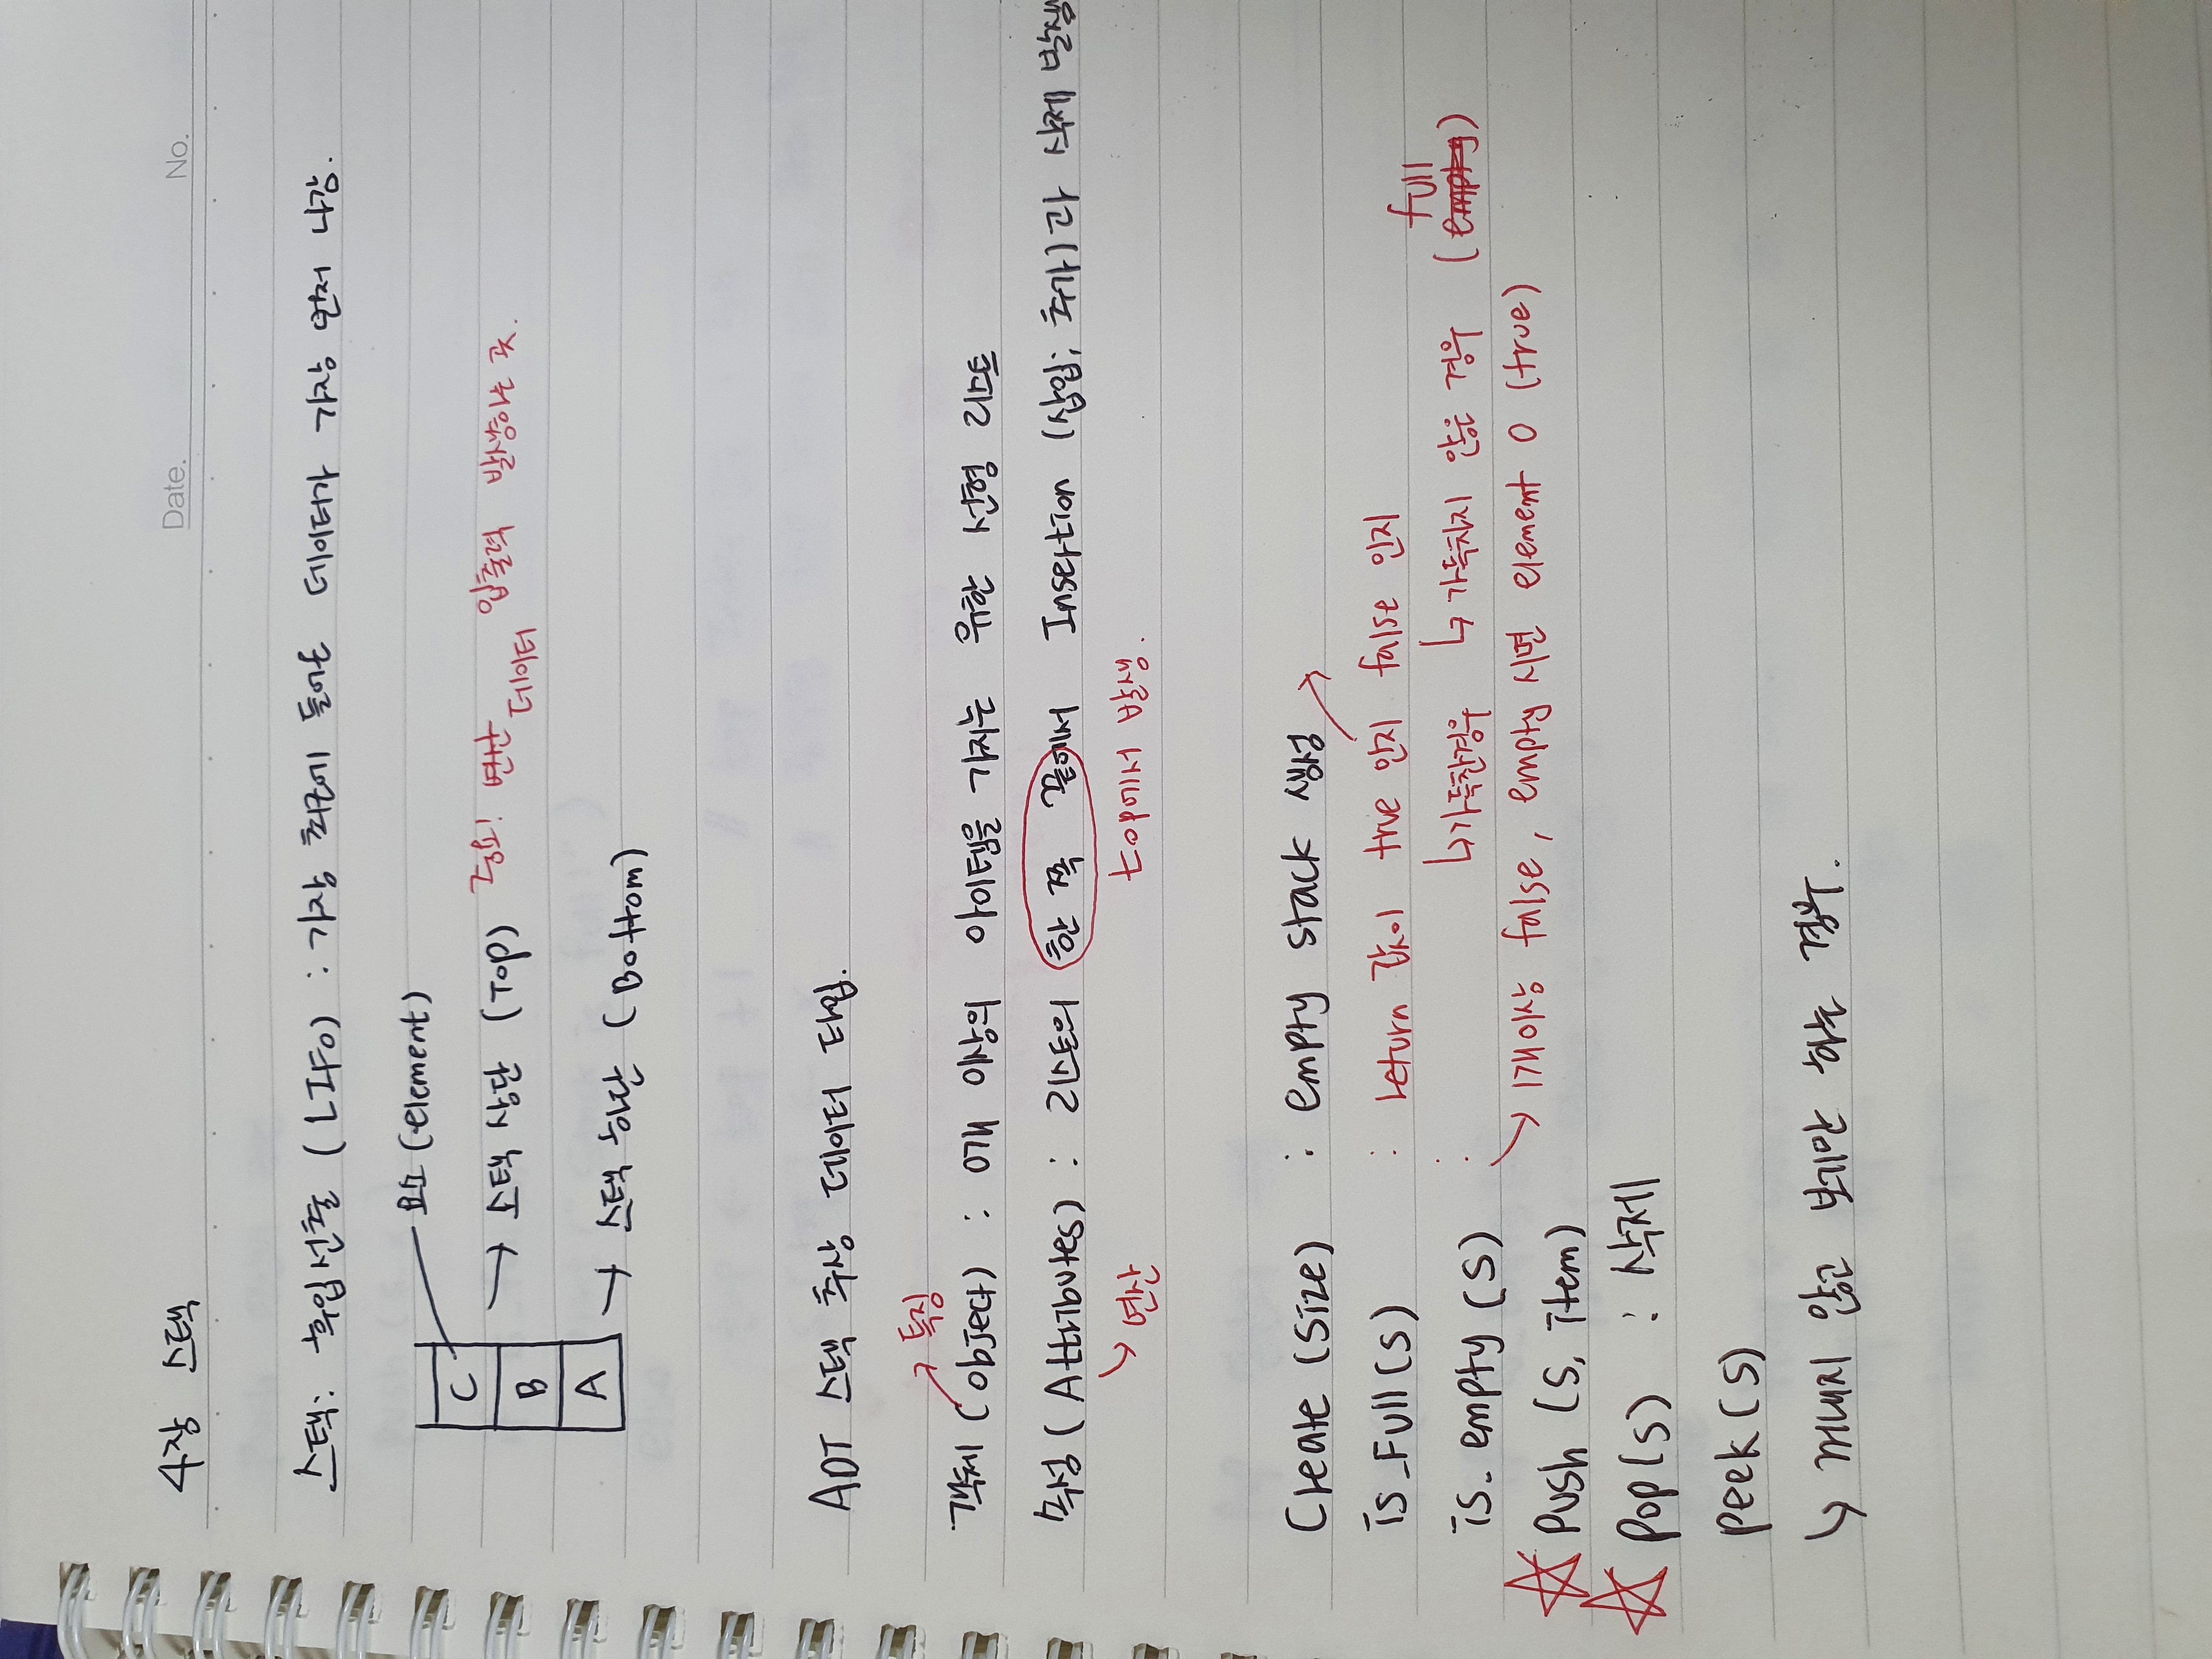 4장 스택
Date. No.
스택: 후입선출 (LIFO) : 가장 최근에 들어온 데이터가 가장 먼저 나감.
요소 (element)
C
스택 상단 (Top) 중요! 연산 데이터 입출력 발생하는 곳.
B
A
스택 하단 (Bottom)
ADT 스택 추상 데이터 타입.
특징
객체 (object) : 0개 이상의 아이템을 가지는 유한 선형 리스트
속성 (Attributes) : 리스트의 한 쪽 끝에서 Insertion (삽입; 추가)과 삭제 발생
연산 top에서 발생.
Create (Size) : empty stack 생성
is_Full(s) : return 값이 true 인지 false 인지
full
is_empty (S) : 가득찬경우 가득차지 않은 경우 (empty)
1개이상 false, empty 시면 element 0 (true)
Push (S, item)
pop(s) : 삭제
peek(s)
꺼내지 않고 보기만 하는 경우.